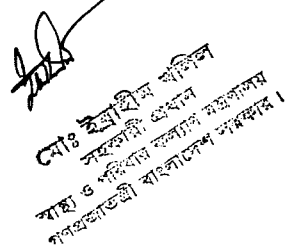 মোঃ ইব্রাহীম খলিল
সহকারী প্রধান
স্বাস্থ্য ও পরিবার কল্যাণ মন্ত্রণালয়
গণপ্রজাতন্ত্রী বাংলাদেশ সরকার।